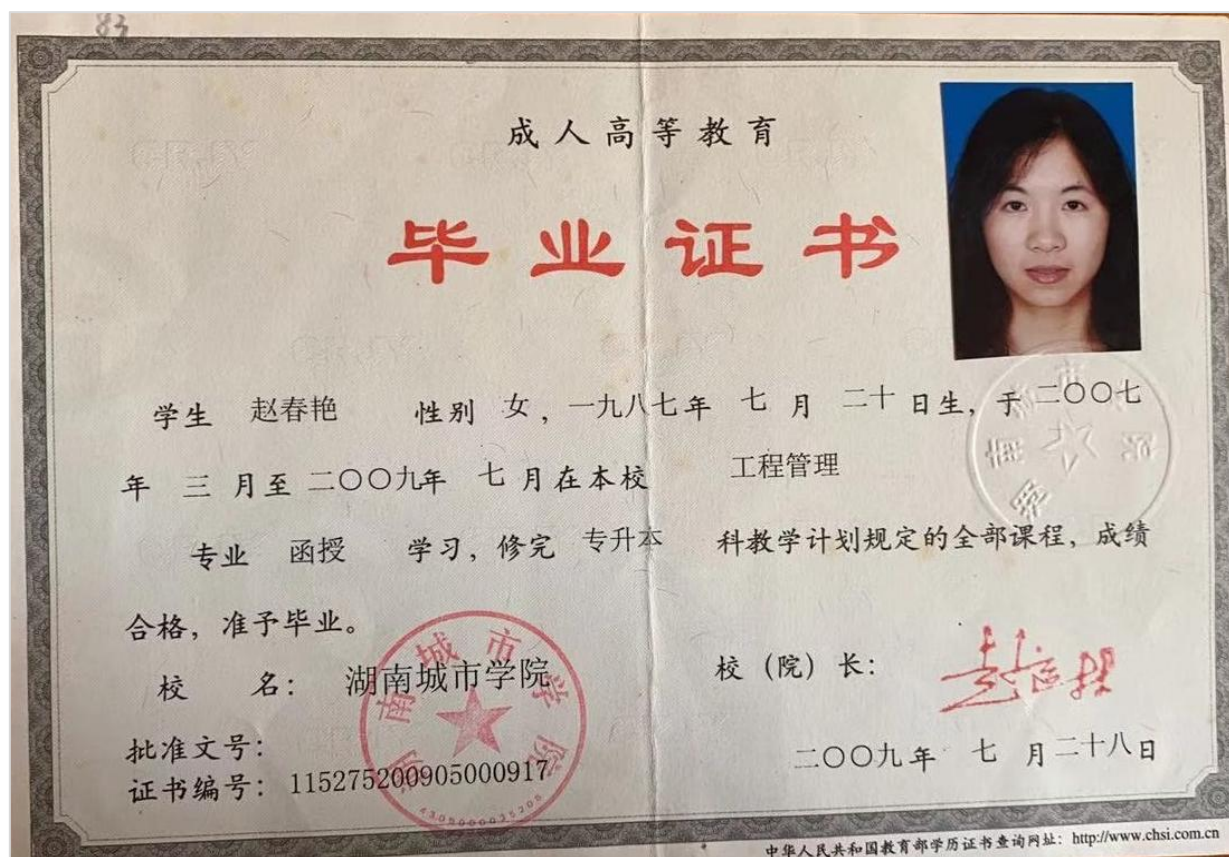 83
成人高等教育
毕业证书
学生 赵春艳 性别 女，一九八七年 七 月 二十 日生，于 二〇〇七
年 三 月至 二〇〇九年 七 月在本校 工程管理
专业 函授 学习，修完 专升本 科教学计划规定的全部课程，成绩
合格，准予毕业。
校 名： 湖南城市学院 校（院）长：
湖南城市学院
批准文号：
二〇〇九年 七 月二十八日
证书编号： 115275200905000917
中华人民共和国教育部学历证书查询网址：http://www.chsi.com.cn